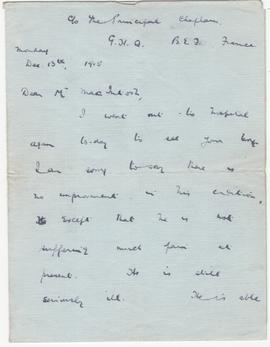 c/o The Principal Chaplain,
G.H.Q. B.E.F. France
Monday
Dec 13th, 1915
Dear Mr MacIntosh,
I went out to hospital
again to-day to see your boy.
I am sorry to say there is
no improvement in his condition,
except that he is not
suffering much pain at
present. He is still
seriously ill. He is able